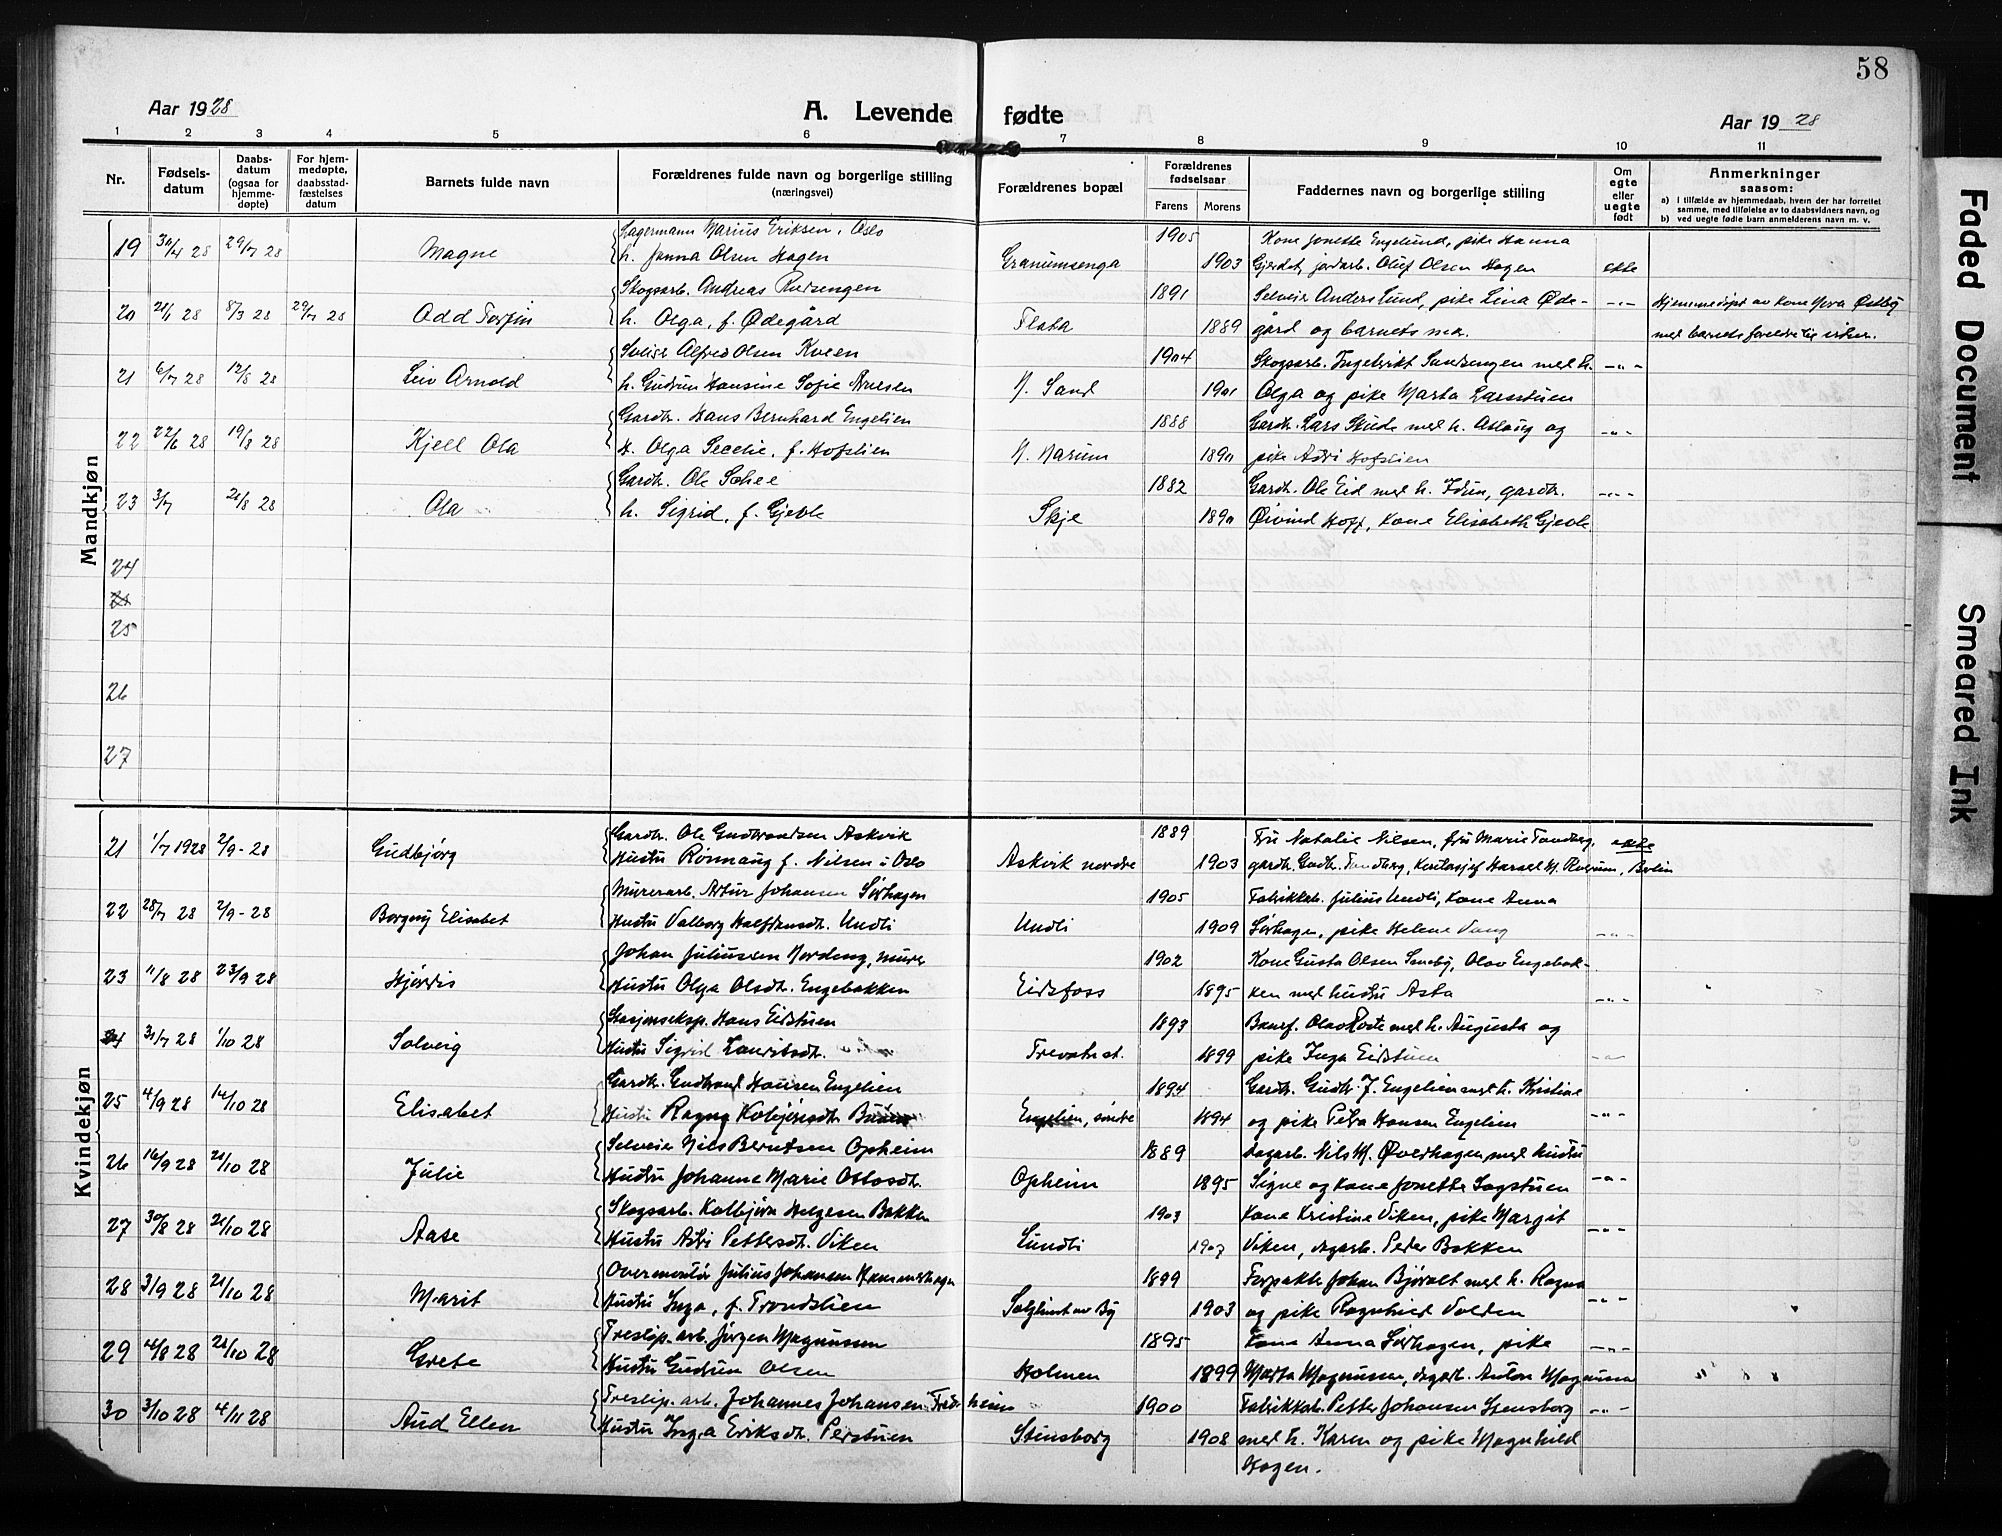 58
Aar 1928
A. Levende fødte
Aar 1928
1 2 3 4 5 6 7 8 9 10 11
Nr.
Fødsels-
datum
Daabs-
datum
(ogsaa for
hjemme-
døpte)
For hjem-
medøpte,
daabsstad-
fæstelses
datum
Barnets fulde navn
Forældrenes fulde navn og borgerlige stilling
(næringsvei)
Forældrenes bopæl
Forældrenes
fødselsaar
Farens Morens
Faddernes navn og borgerlige stilling
Om
egte
eller
uegte
født
Anmerkninger
saasom:
a) I tilfælde av hjemmedaab, hvem der har forrettet
samme, med tilføielse av to daabsvidners navn, og
b) ved uegte fødte barn anmelderens navn m. v.
Mandkjøn
Lagermann Marius Eriksen, Oslo 1905 Kone Jonette Engelund, pike Hanna
19 30/4 28 29/7 28 Magne h. Jonna Olsen Hagen Granumsenga 1903 Gjerdet, jordarb. Oluf Olsen Hagen ekte
Skogsarb. Andreas Rudsengen 1891 Selveier Anders Lund, pike Lina Øde-
20 21/1 28 8/3 28 29/7 28 Odd Torfin h. Olga, f. Ødegård Flata 1889 gård og barnets mor. -"- Hjemmedøpt av kone Østby
med barnets foreldre til vidner.
Alfred Olsen Kveen 1904 Skogsarb. Ingebrikt Sandsengen med h.
21 6/7 28 12/8 28 Leiv Arnold h. Gudrun Hansine Sofie N. Sand 1901 Olga og pike Marta Larsstuen -"-
Gardbr. Hans Bernhard Engelien 1888 Gardbr. Lars Skude med h. Aslaug og
22 22/6 28 19/8 28 Kjell Ola H. Olga Secelie, f. Hofslien N. Narum 1890 pike Astri Hofslien -"-
Gardbr. Ole Sohee 1882 Gardbr. Ole Eid med h. Idun, gardbr.
23 3/7 26/8 28 Ola h. Sigrid, f. Gjevle Skje 1890 Øivind Hoff, kone Elisabeth Gjevle -"-
24
25
26
27
Kvindekjøn
Gardbr. Ole Gudbrandsen Askvik 1889 Fru Natalie Nilsen, fru Marie Tandberg,
21 1/7 1928 2/9-28 Gudbjørg Hustru Rønnaug f. Nilsen i Oslo Askvik nordre 1903 gardbr. Gudb. Tandberg, Hassel M. Berlin ekte
Murerarb. Artur Johansen Sørhagen 1905 Fabrikkarb. Julius Undli, kone Anna
22 28/7 28 2/9-28 Borgny Elisabet Hustru Valborg Halfdansdtr. Undli Undli 1909 Sørhagen, pike Helene Vang -"-
Johan Juliussen Nordeng, murer 1902 Kone Gusta Olsen Sandby, Olav Engebak-
23 11/8 28 23/9 28 Hjørdis Hustru Olga Olsdtr. Engebakken Eidsfoss 1895 ken med hustru Asta -"-
Stasjonseksp. Hans Eidstuen 1893 Banef. Olav Roste med h. Augusta og
24 31/7 28 1/10 28 Solveig Hustru Sigrid Lauritsdtr. Trevatn st. 1899 pike Inga Eidstuen -"-
Gardbr. Gudbrand Hansen Engelien 1894 Gardbr. Gudbr. J. Engelien med h. Kristine
25 4/9 28 14/10 28 Elisabet Hustru Ragna Kolbjørnsdtr. Engelien, søndre 1894 og pike Petra Hansen Engelien -"-
Selveier Nils Berntsen Opheim 1889 dagarb. Nils M. Øverhagen med hustru
26 16/9 28 21/10 28 Julie Hustru Johanne Marie Ottosdtr. Opheim 1895 Signe og kone Jonette Sagstuen -"-
Skogsarb. Kolbjørn Helgesen Bakken 1903 kone Kristine Viken, pike Margit
27 30/8 28 21/10 28 Aase Hustru Astri Pettersdtr. Viken Lundli 1907 Viken, dagarb. Peder Bakken -"-
Overmontør Julius Johansen Hammershagen 1899 Forpakter Johan Bjørvolt med h. Ragna
28 3/9 28 21/10 28 Marit Hustru Inga, f. Trondslien Solglimt av By 1903 og pike Ragnhild Volden -"-
Treslip. arb. Jørgen Magnussen 1895 kone Anna Sørhagen, pike
29 16/8 28 28/10 28 Grete Hustru Gudrun Olsen Holmen 1899 Marta Magnussen, dagarb. Anton Magnussen -"-
Treslip. arb. Johannes Johansen Fredheim 1900 Fabrikkarb. Petter Johansen Stensborg
30 3/10 28 4/11 28 Aud Ellen Hustru Inga Eriksdtr. Perstuen Stensborg 1908 med h. Karen og pike Magnhild -"-
Hagen.
Faded Document
Smeared Ink